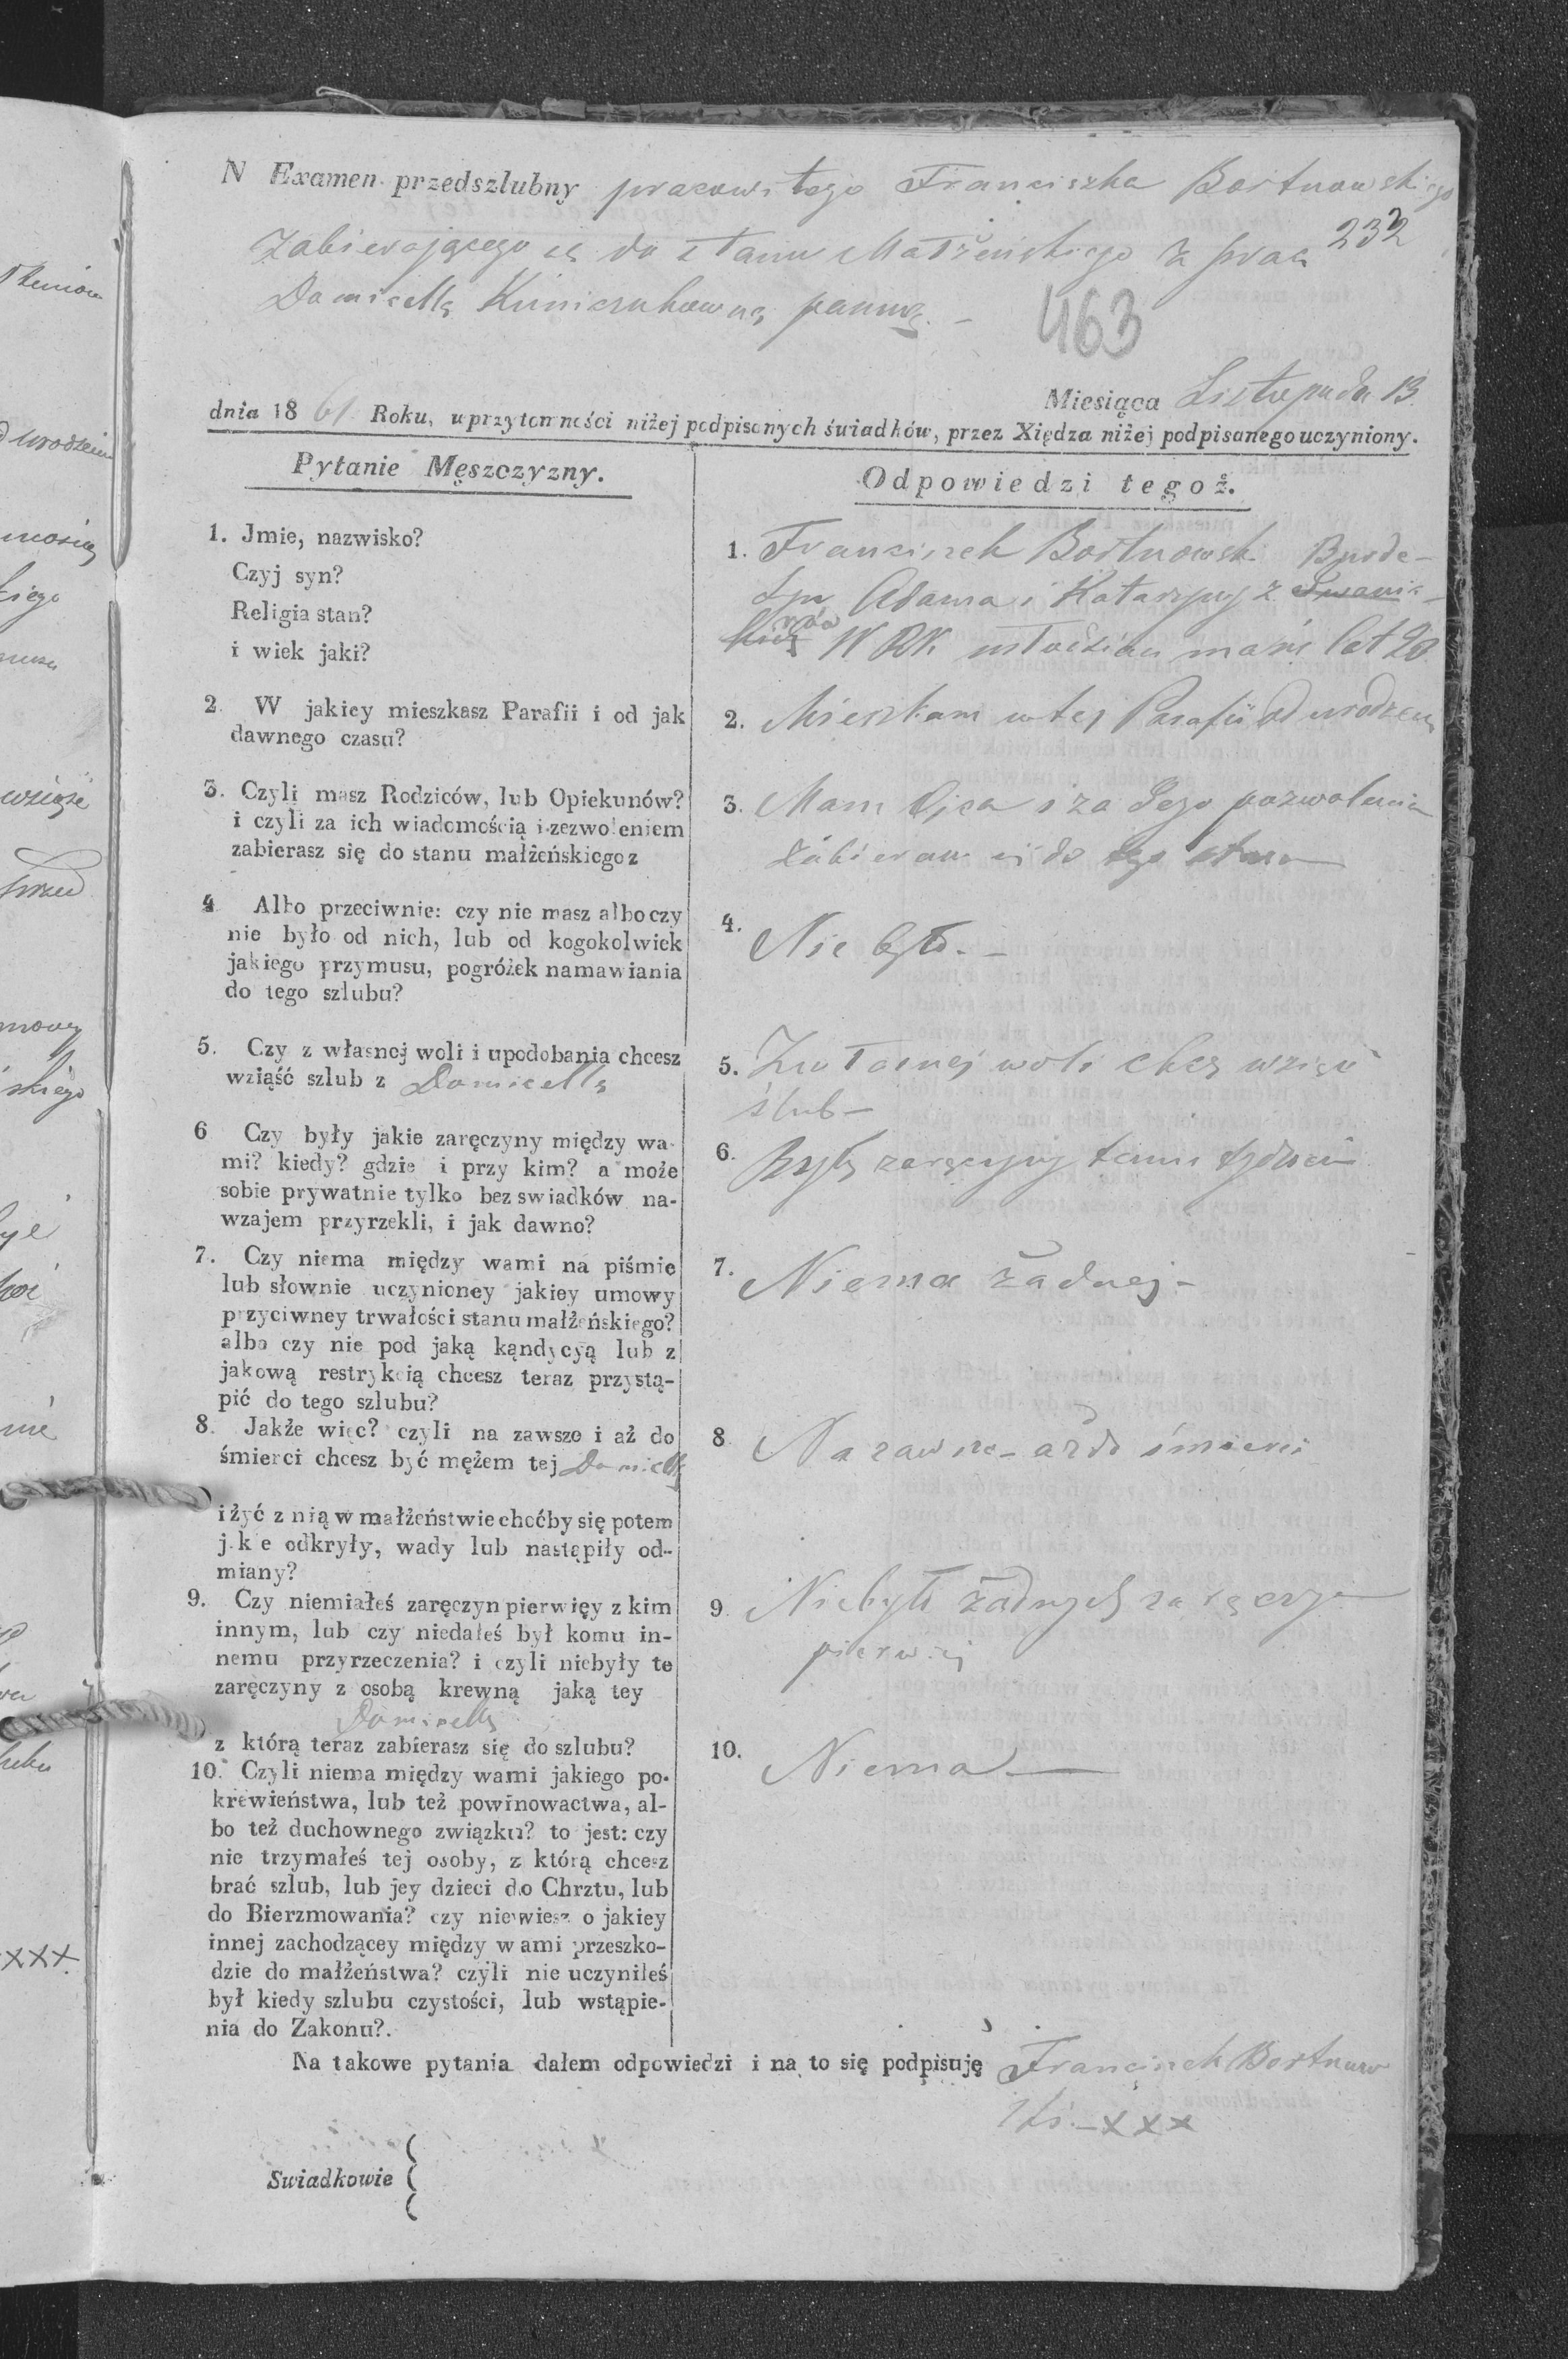 N Examen przedszlubny pracowitego Franciszka Bortnowskiego
232
Zabierającego się do stanu Małżeńskiego z prac
Domicellą Kuniczukowną panną. –
463
Miesiąca Listopada 13
dnia 1861 Roku, w przytomności niżej podpisanych świadków, przez Xiędza niżej podpisanego uczyniony.
Pytanie Męszczyzny.
1. Jmie, nazwisko?
Czyj syn?
Religia stan?
i wiek jaki?
2. W jakiey mieszkasz Parafii i od jak
dawnego czasu?
3. Czyli masz Rodziców, lub Opiekunów?
i czyli za ich wiadomością i zezwoleniem
zabierasz się do stanu małżeńskiego z
4 Albo przeciwnie: czy nie masz albo czy
nie było od nich, lub od kogokolwiek
jakiego przymusu, pogróżek namawiania
do tego szlubu?
5. Czy z własnej woli i upodobania chcesz
wziąść szlub z Domicellą
6 Czy były jakie zaręczyny między wa-
mi? kiedy? gdzie i przy kim? a może
sobie prywatnie tylko bez swiadków na-
wzajem przyrzekli, i jak dawno?
7. Czy niema między wami na piśmie
lub słownie uczynioney jakiey umowy
przyciwney trwałości stanu małżeńskiego?
albo czy nie pod jaką kąndycyą lub z
jakową restrykcią chcesz teraz przystą-
pić do tego szlubu?
8. Jakże więc? czyli na zawsze i aż do
śmierci chcesz być mężem tej Domicelli
i żyć z nią w małżeństwie choćby się potem
j.k e odkryły, wady lub nastąpiły od-
miany?
9. Czy niemiałeś zaręczyn pierwięy z kim
innym, lub czy niedałeś był komu in-
nemu przyrzeczenia? i czyli niebyły te
zaręczyny z osobą krewną jaką tey
Domicelli
z którą teraz zabierasz się do szlubu?
10. Czyli niema między wami jakiego po-
krewieństwa, lub też powinowactwa, al-
bo też duchownego związku? to jest: czy
nie trzymałeś tej osoby, z którą chcesz
brać szlub, lub jey dzieci do Chrztu, lub
do Bierzmowania? czy niewiesz o jakiey
innej zachodzącey między wami przeszko-
dzie do małżeństwa? czyli nie uczyniłeś
był kiedy szlubu czystości, lub wstąpie-
nia do Zakonu?.
Odpowiedzi tegoż.
1. Franciszek Bortnowski
Syn Adama i Katarzyny z
WRK młodzian mam lat 20
2. Mieszkam w tej Parafii od urodzenia
3. Mam Ojca i za Jego pozwoleniem
zabieram się do tego stanu
4. Nie było. –
5. Z własnej woli chcę wziąść
ślub –
6. Były zaręczyny temu tydzień
7. Niema żadnej –
8 Na zawsze – aż do śmierci
9. Niebyło żadnych zaręczyn
pierwiej
10. Niema –
Na takowe pytania dałem odpowiedzi i na to się podpisuję Franciszek Bortnow
ski – xxx
Swiadkowie